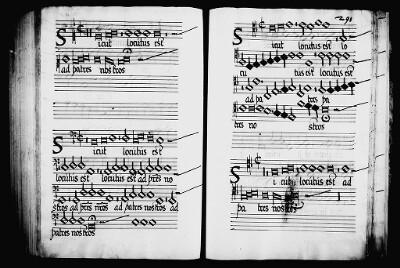 Sicut locutus est
ad patres nostros
Sicut locutus est
locutus est locutus est ad pr̄es no
stros ad pr̄es nr̄os ad patres nostros ad
patres nostros
291
Sicut locutus est lo
cu tus est locutus est
ad pa tres pa
tres no stros
Sicut locutus est ad
pa tres nostros